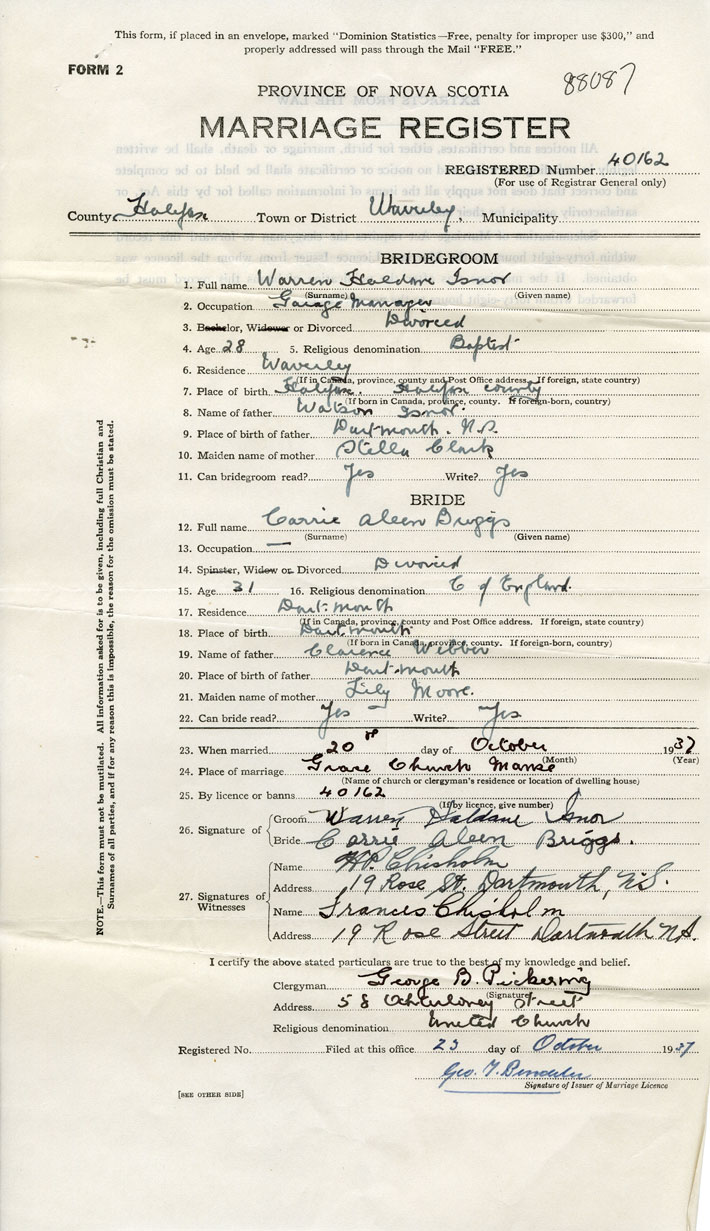 This form, if placed in an envelope, marked "Dominion Statistics—Free, penalty for improper use $300," and
properly addressed will pass through the Mail "FREE."
FORM 2
88087
PROVINCE OF NOVA SCOTIA
MARRIAGE REGISTER
REGISTERED Number 40162
(For use of Registrar General only)
County Halifax Town or District Waverley, Municipality
BRIDEGROOM
1. Full name Warren Haldane Isnor
(Surname) (Given name)
2. Occupation Garage Manager
3. Bachelor, Widower or Divorced Divorced
4. Age 28 5. Religious denomination Baptist
6. Residence Waverley
(If in Canada, province, county and Post Office address. If foreign, state country)
7. Place of birth Halifax. Halifax County
(If born in Canada, province, county. If foreign-born, country)
8. Name of father Watson Isnor.
9. Place of birth of father Dartmouth. N.S.
10. Maiden name of mother Stella Clark
11. Can bridegroom read? Yes Write? Yes
BRIDE
12. Full name Carrie Aleen Briggs
(Surname) (Given name)
13. Occupation —
14. Spinster, Widow or Divorced Divorced
15. Age 31 16. Religious denomination C of England.
17. Residence Dartmouth
(If in Canada, province, county and Post Office address. If foreign, state country)
18. Place of birth Dartmouth
(If born in Canada, province, county. If foreign-born, country)
19. Name of father Clarence Webber
20. Place of birth of father Dartmouth
21. Maiden name of mother Lily Moore.
22. Can bride read? Yes — Write? Yes
23. When married 20th day of October 1937
(Month) (Year)
24. Place of marriage Grace Church Manse
(Name of church or clergyman's residence or location of dwelling house)
25. By licence or banns 40162
(If by licence, give number)
26. Signature of
Groom Warren Haldane Isnor
Bride Carrie Aleen Briggs.
27. Signatures of Witnesses
Name H.P. Chisholm
Address 19 Rose St. Dartmouth, N.S.
Name Frances Chisholm
Address 19 Rose Street Dartmouth N.S.
I certify the above stated particulars are true to the best of my knowledge and belief.
Clergyman George B. Pickering
(Signature)
Address 58 Ochterloney Street
Religious denomination United Church
Registered No. Filed at this office 23 day of October 1937
Geo. T.
Signature of Issuer of Marriage Licence
[SEE OTHER SIDE]
NOTE.—This form must not be mutilated. All information asked for is to be given, including full Christian and
Surnames of all parties, and if for any reason this is impossible, the reason for the omission must be stated.